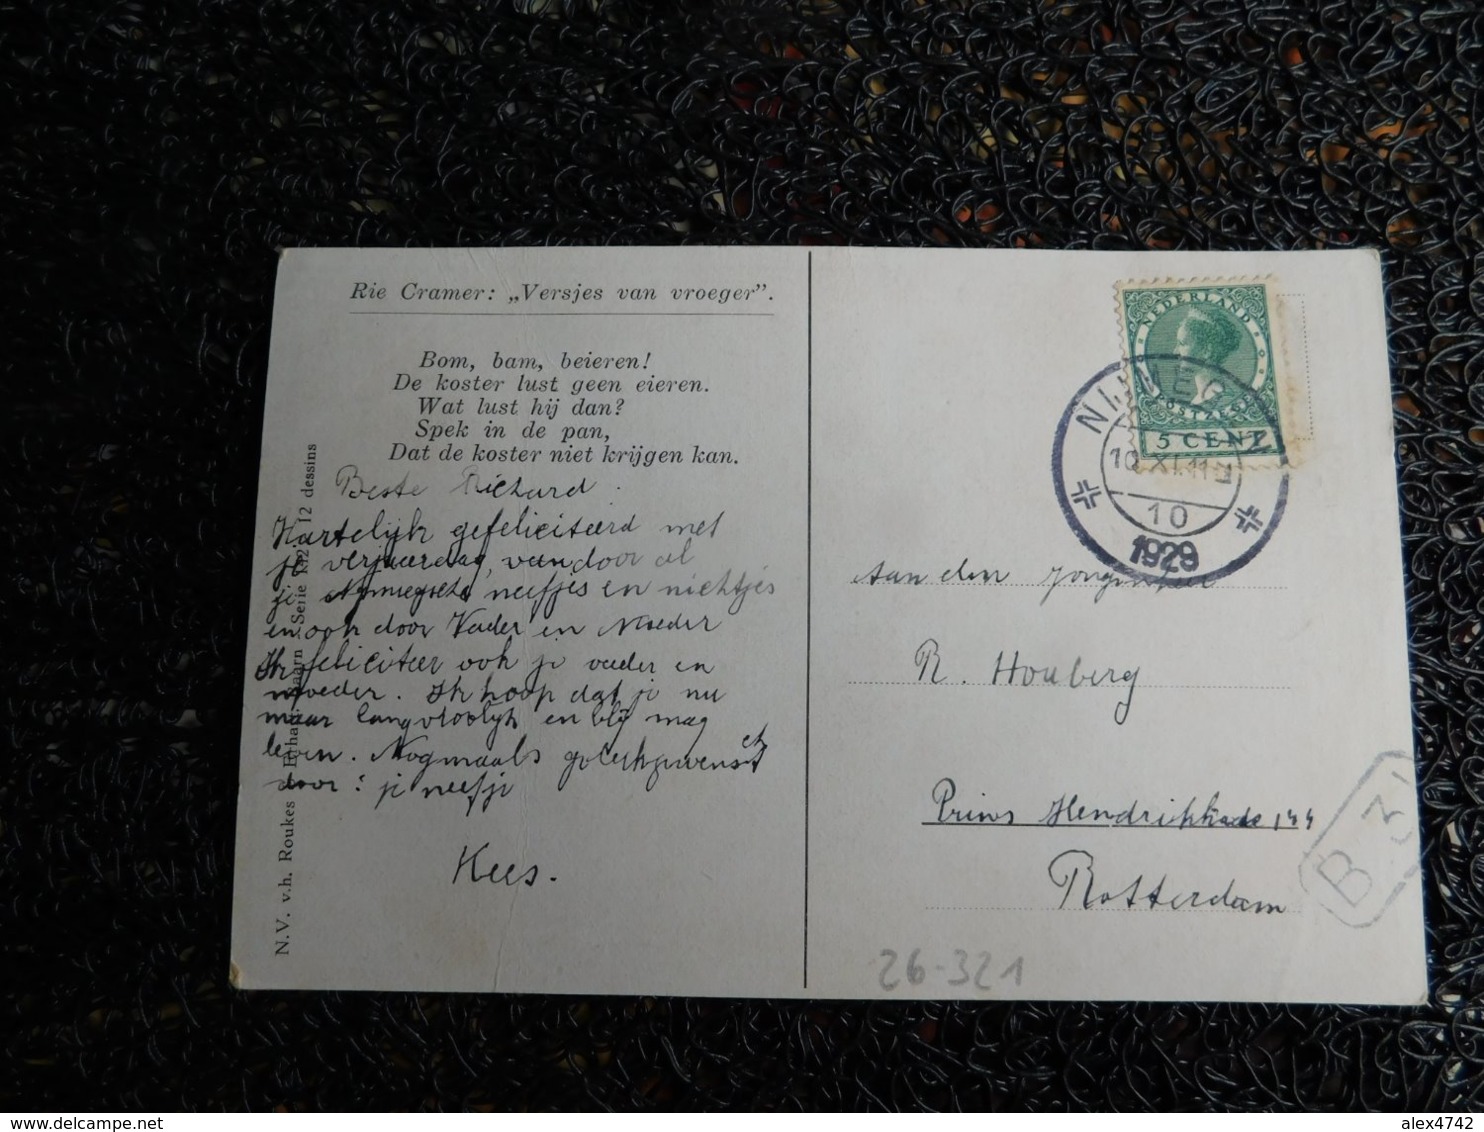 Rie Cramer: „Versjes van vroeger".
Bom, bam, beieren!
De koster lust geen eieren.
Wat lust hij dan?
Spek in de pan,
Dat de koster niet krijgen kan.
Beste Richard.
Hartelijk gefeliciteerd met
je verjaardag, van door al
je neefjes en nichtjes
en ook door Vader en Moeder
Ik feliciteer ook je vader en
moeder. Ik hoop dat je nu
maar lang vroolijk en blij mag
leven. Nogmaals
door: je neefje
Kees.
N.V. v.h. Roukes
Serie 12 dessins
NEDERLAND
POSTZEGEL
5 CENT
10 XI.11
10
1929
Aan den Jongeheer
R. Houberg
Prins Hendrikkade 144
Rotterdam
B 3
26-321
alex4742